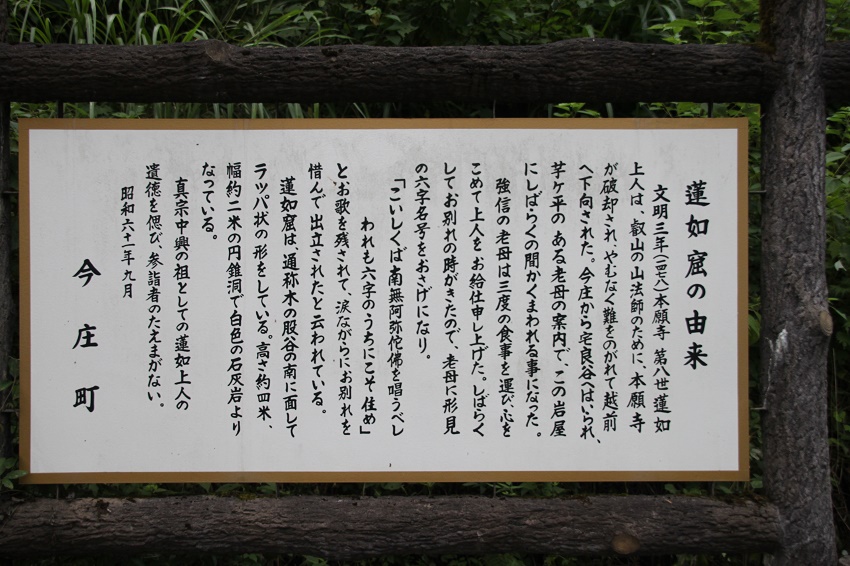 蓮如窟の由来
文明三年(一四七一)本願寺 第八世蓮如
上人は、叡山の山法師のために、本願寺
が破却され、やむなく難をのがれて越前
へ下向された。今庄から宅良谷へはいられ、
芋ヶ平の ある老母の案内で、この岩屋
にしばらくの間かくまわれる事になった。
強信の老母は三度の食事を運び、心を
こめて上人を お給仕申し上げた。しばらく
してお別れの時がきたので、老母に形見
の六字名号をおさげになり。
「こいしくば南無阿弥佗佛を唱うべし
われも六字のうちにこそ住め」
とお歌を残されて、涙ながらにお別れを
惜んで出立されたと云われている。
蓮如窟は、通称木の股谷の南に面して
ラッパ状の形をしている。高さ約四米、
幅約二米の円錐洞で白色の石灰岩より
なっている。
真宗中興の祖としての蓮如上人の
遺徳を偲び、参詣者のたえまがない。
昭和六十一年九月
今庄町